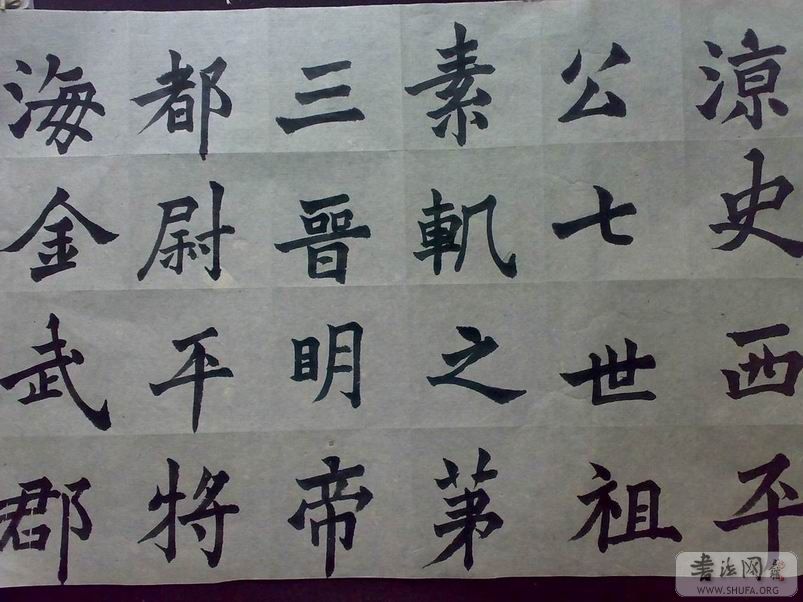 涼史西平
公七世祖
素軌之苐
三晉明帝
都尉平将
海金武郡
書法网
WWW.SHUFA.ORG